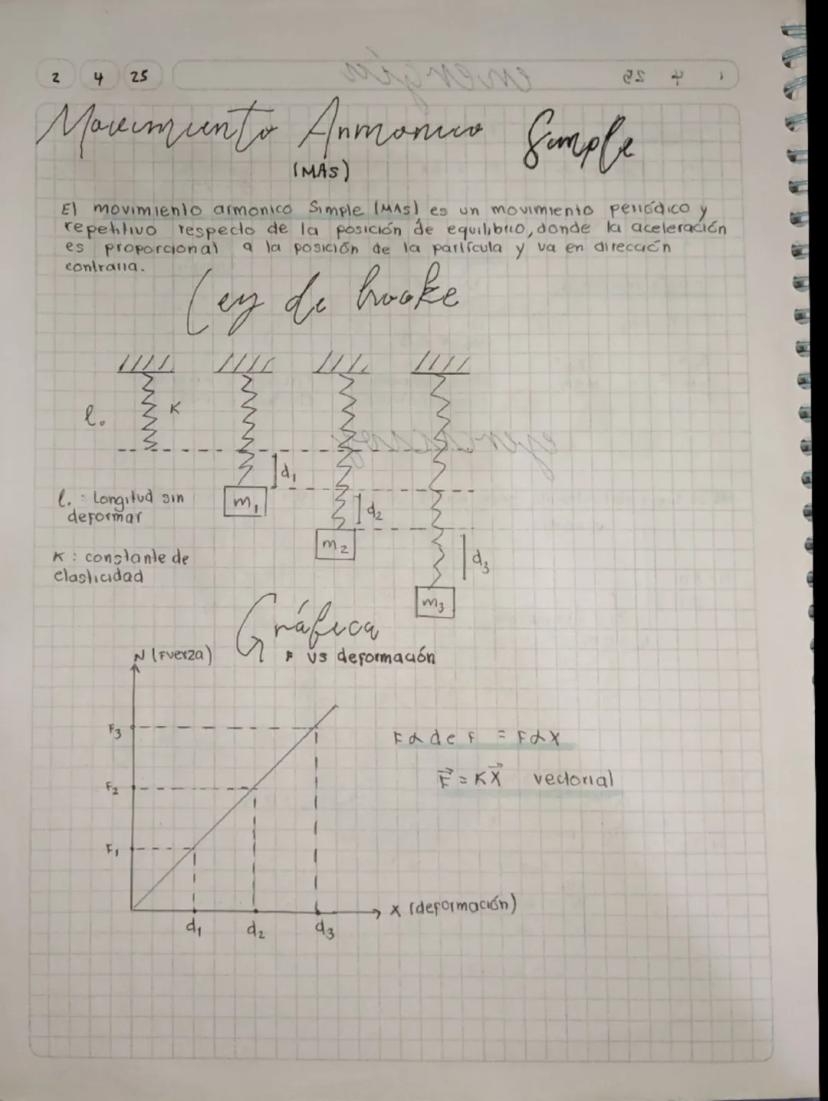 2 4 25
Movimiento Armonico Simple
(MAS)
El movimiento armonico Simple (MAS) es un movimiento periódico y
repetitivo respecto de la posición de equilibrio, donde la aceleración
es proporcional a la posición de la partícula y va en dirección
contraria.
Ley de hooke
l. K
d1
l. : Longitud sin
deformar
m1
d2
m2
K : constante de
elasticidad
d3
m3
Gráfica
F vs deformación
N (Fuerza)
F3
F α de F = F α X
F⃗ = K X⃗ vectorial
F2
F1
X (deformación)
d1 d2 d3